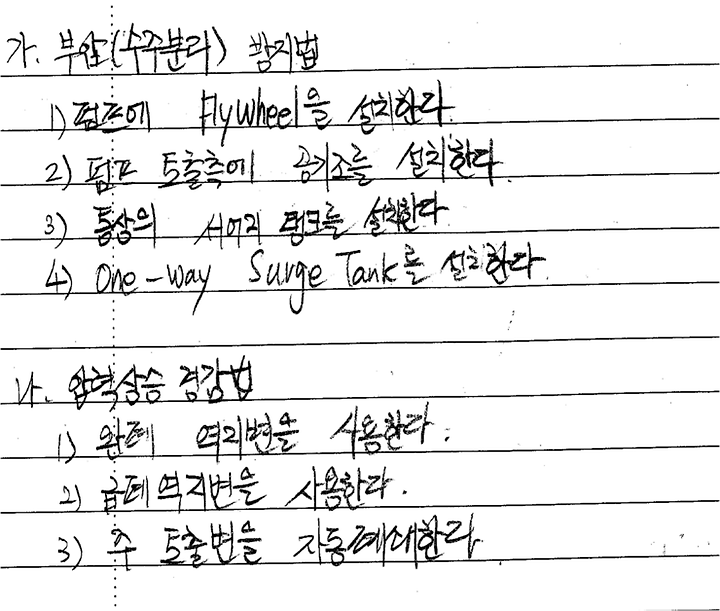 가. 부압(수주분리) 방지법
1) 펌프에 Flywheel을 설치한다.
2) 펌프 토출측에 공기조를 설치한다.
3) 통상의 서어지 탱크를 설치한다
4) One-way Surge Tank를 설치한다.
나. 압력상승 경감법
1) 완폐 역지변을 사용한다.
2) 급폐역지변을 사용한다.
3) 주 토출변을 자동폐쇄한다